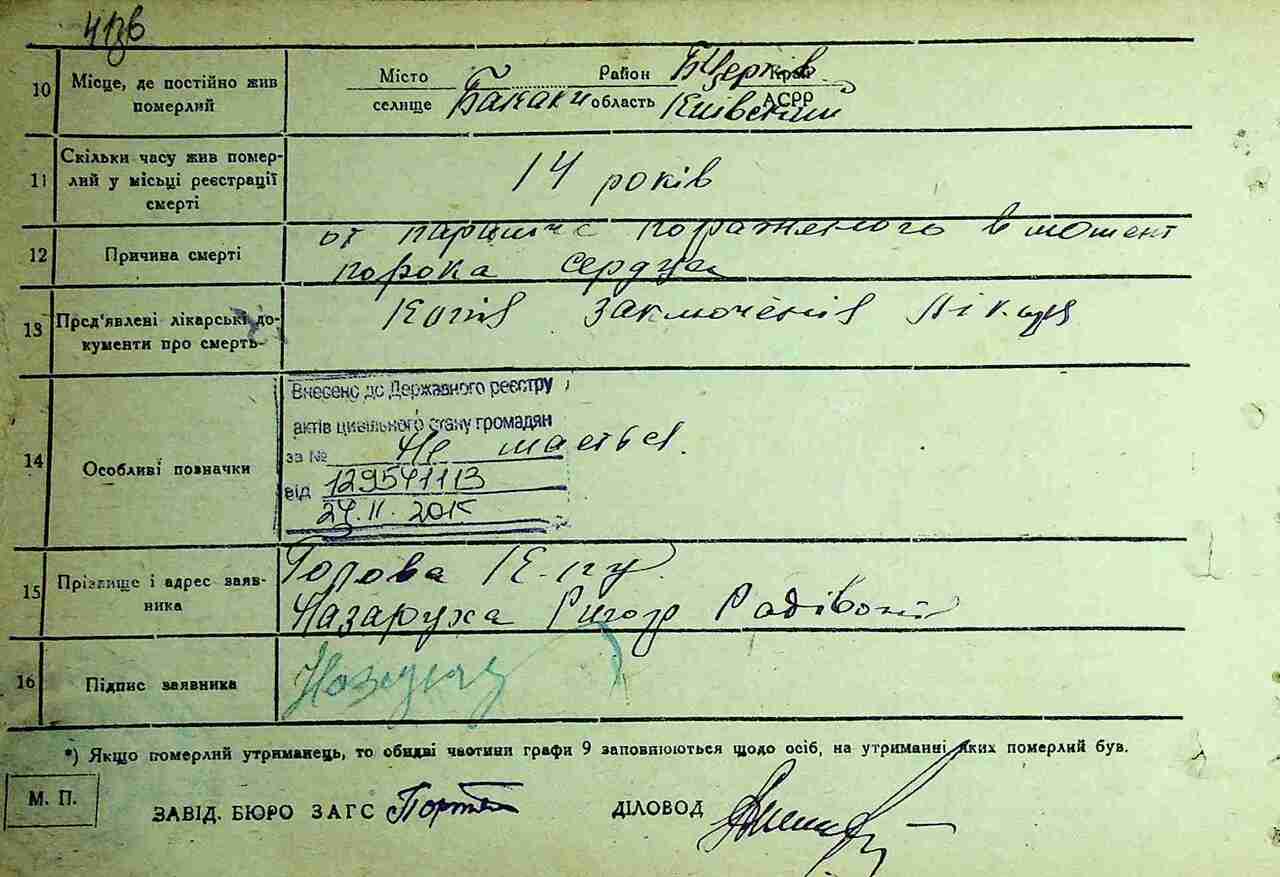 10 Місце, де постійно жив Місто Район Б Церків Край
померлий селище область Київський АСРР
11 Скільки часу жив помер-
лий у місьці реєстрації 14 років
смерті
12 Причина смерті от параліча пораженого в момент
порока сердця
13 Пред'явлені лікарські до- Копія заключенія лікаря
кументи про смерть
Внесено до Державного реєстру
актів цивільного стану громадян
14 Особливі позначки за № Не мається
від 129541113
24.11. 2015
15 Прізвище і адрес заяв- Голова
ника Назаруха Ригор
16 Підпис заявника
*) Якщо померлий утриманець, то обидві частини графи 9 заповнюються щодо осіб, на утриманні яких померлий був.
М. П.
ЗАВІД. БЮРО ЗАГС ДІЛОВОД